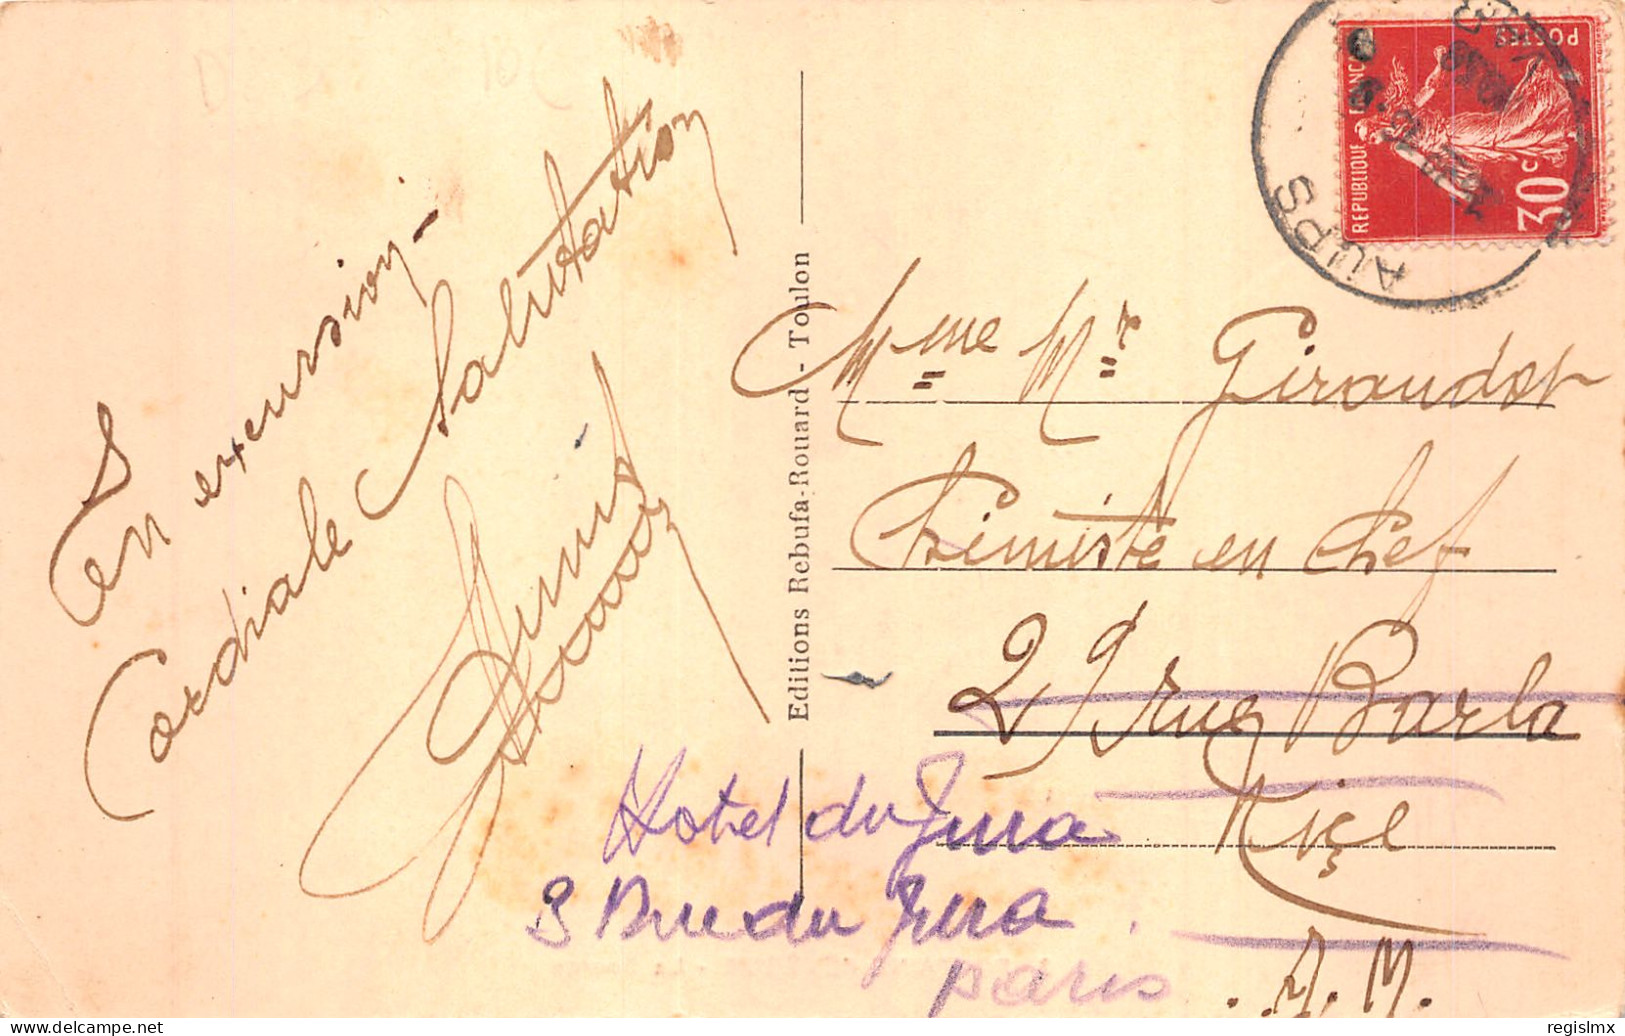 En excursion -
Cordiale Salutation
Editions Rebufa-Rouard - Toulon
REPUBLIQUE FRANC
POSTES
30c
AUPS
Mme Mr Giraudot
Chimiste en Chef
29 rue Barla
Niçe
A. M.
Hotel du Jura
Rue du Jura
paris
www.delcampe.net
regislmx